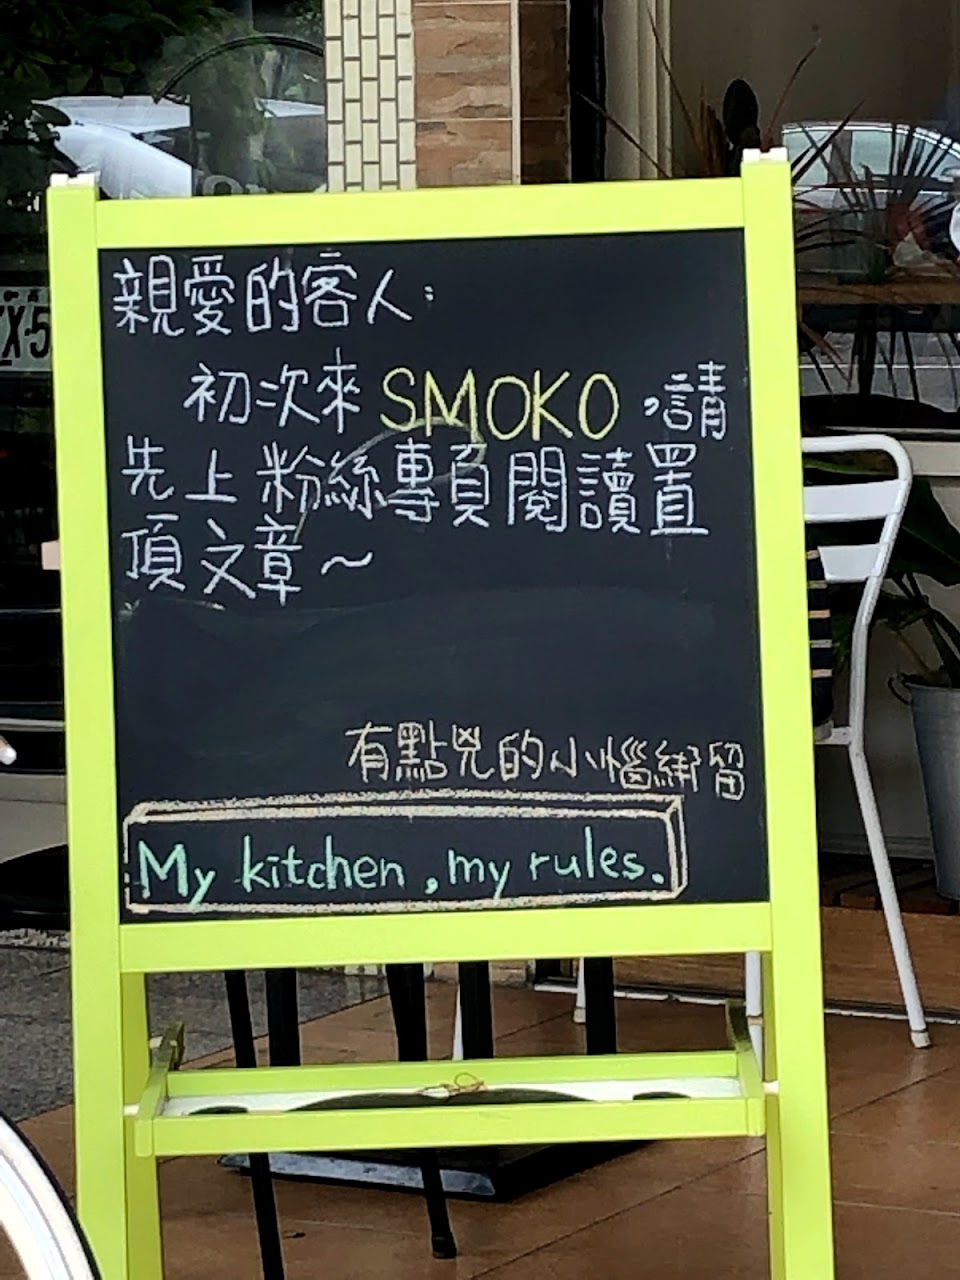 親愛的客人:
初次來SMOKO,請
先上粉絲專頁閱讀置
頂文章~
有點兇的小惱綁留
My kitchen, my rules.
X-5